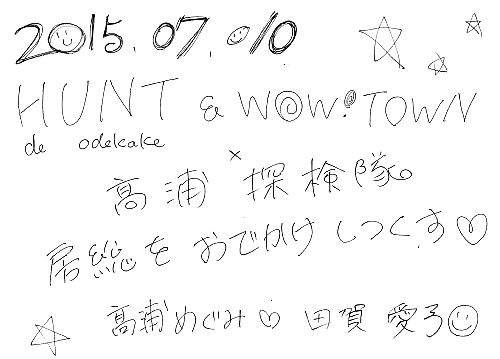 2015.07.10
HUNT & WOW! TOWN
de odekake
高浦×探検隊。
房総を おでかけ しつくす♡
高浦めぐみ♡ 田賀 愛子